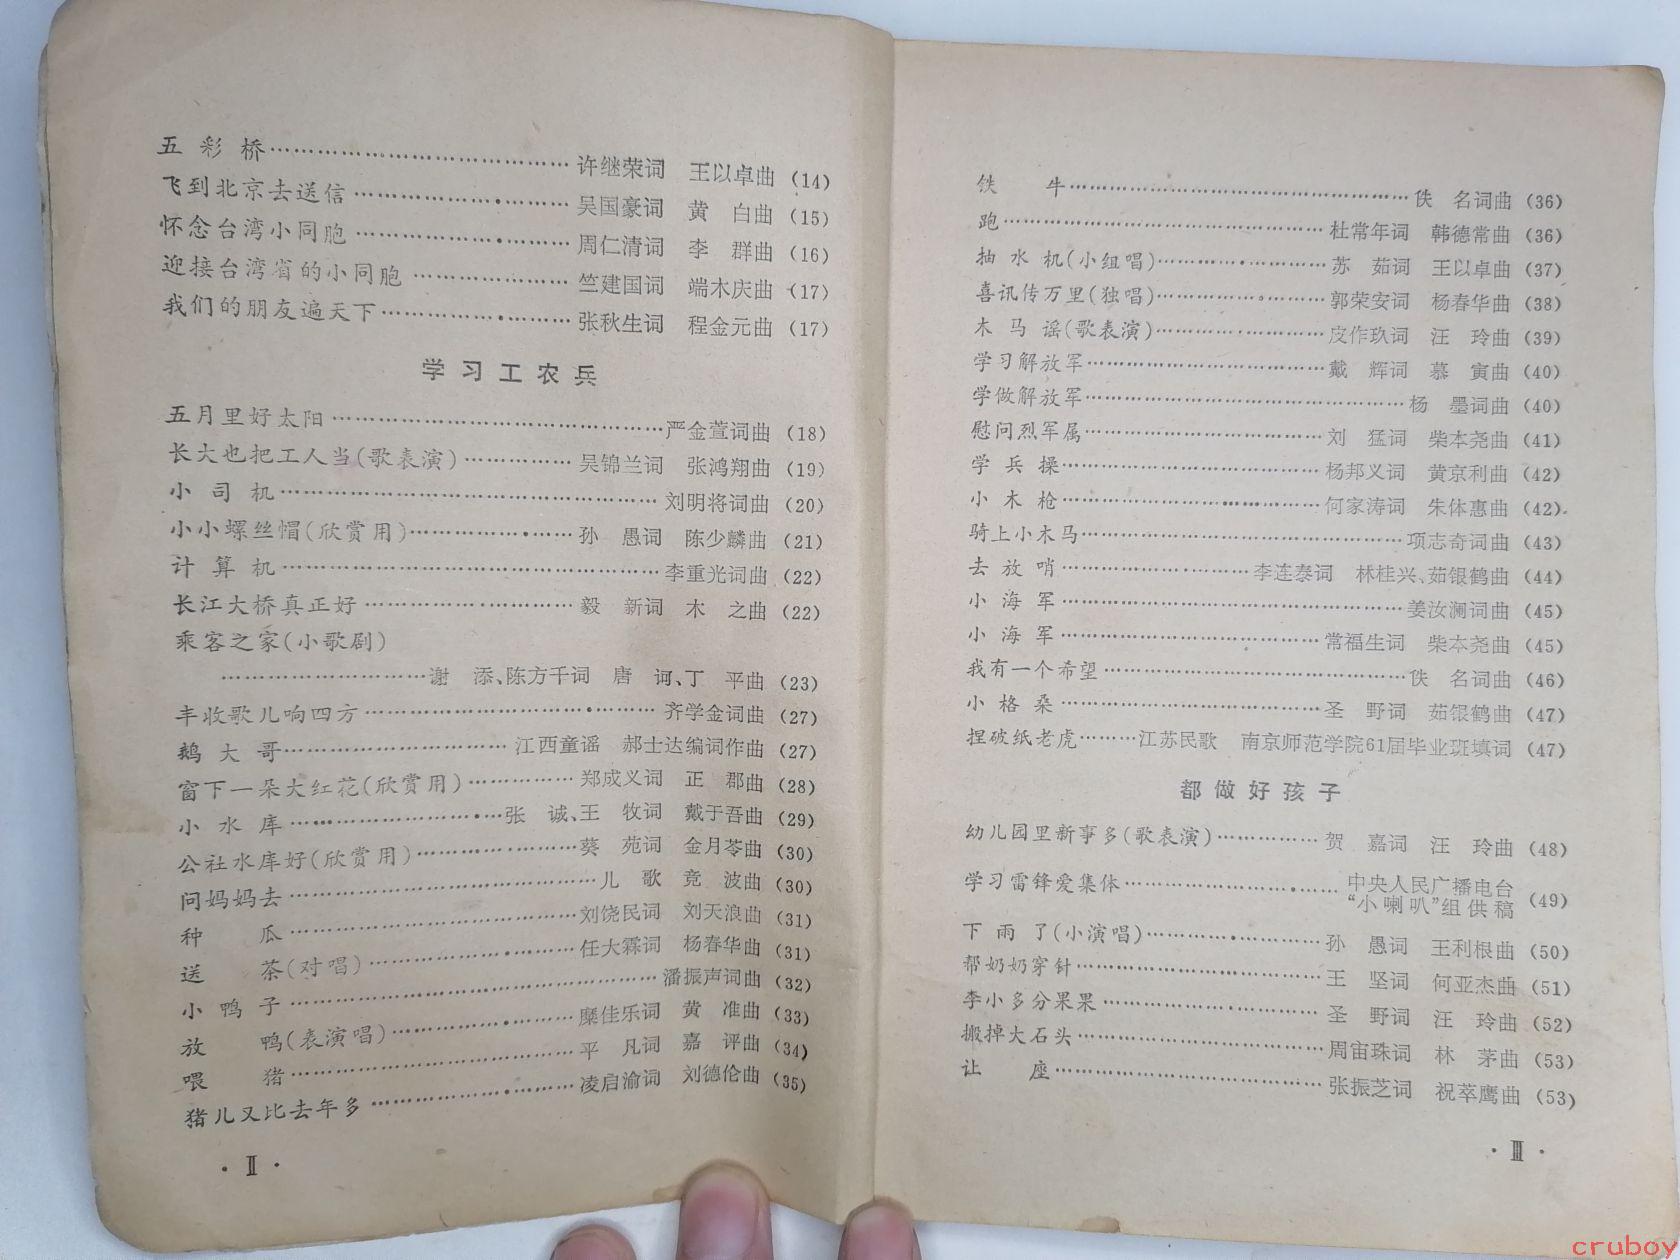 五彩桥………………………………许继荣词 王以卓曲 (14)
飞到北京去送信………………………吴国豪词 黄 白曲 (15)
怀念台湾小同胞………………………周仁清词 李 群曲 (16)
迎接台湾省的小同胞…………………竺建国词 端木庆曲 (17)
我们的朋友遍天下……………………张秋生词 程金元曲 (17)
学习工农兵
五月里好太阳…………………………………严金萱词曲 (18)
长大也把工人当(歌表演)……………吴锦兰词 张鸿翔曲 (19)
小司机…………………………………………刘明将词曲 (20)
小小螺丝帽(欣赏用)…………………孙 愚词 陈少麟曲 (21)
计算机…………………………………………李重光词曲 (22)
长江大桥真正好………………………毅 新词 木 之曲 (22)
乘客之家(小歌剧)
………………………谢 添、陈方千词 唐 诃、丁 平曲 (23)
丰收歌儿响四方………………………………齐学金词曲 (27)
鹅大哥………………………江西童谣 郝士达编词作曲 (27)
窗下一朵大红花(欣赏用)……………郑成义词 正 郡曲 (28)
小水库………………………张 诚、王 牧词 戴于吾曲 (29)
公社水库好(欣赏用)…………………葵 苑词 金月苓曲 (30)
问妈妈去………………………………儿 歌 竞 波曲 (30)
种 瓜…………………………………刘饶民词 刘天浪曲 (31)
送 茶(对唱)………………………任大霖词 杨春华曲 (31)
小鸭子…………………………………………潘振声词曲 (32)
放 鸭(表演唱)……………………糜佳乐词 黄 准曲 (33)
喂 猪…………………………………平 凡词 嘉 评曲 (34)
猪儿又比去年多………………………凌启渝词 刘德伦曲 (35)
·Ⅱ·
铁 牛…………………………………………佚 名词曲 (36)
跑………………………………………杜常年词 韩德常曲 (36)
抽水机(小组唱)……………………苏 茹词 王以卓曲 (37)
喜讯传万里(独唱)…………………郭荣安词 杨春华曲 (38)
木马谣(歌表演)……………………皮作玖词 汪 玲曲 (39)
学习解放军……………………………戴 辉词 慕 寅曲 (40)
学做解放军……………………………………杨 墨词曲 (40)
慰问烈军属……………………………刘 猛词 柴本尧曲 (41)
学兵操…………………………………杨邦义词 黄京利曲 (42)
小木枪…………………………………何家涛词 朱体惠曲 (42)
骑上小木马……………………………………项志奇词曲 (43)
去放哨………………………李连泰词 林桂兴、茹银鹤曲 (44)
小海军…………………………………………姜汝澜词曲 (45)
小海军…………………………………常福生词 柴本尧曲 (45)
我有一个希望…………………………………佚 名词曲 (46)
小格桑…………………………………圣 野词 茹银鹤曲 (47)
捏破纸老虎………江苏民歌 南京师范学院61届毕业班填词 (47)
都做好孩子
幼儿园里新事多(歌表演)……………贺 嘉词 汪 玲曲 (48)
学习雷锋爱集体………………………中央人民广播电台
“小喇叭”组供稿 (49)
下雨了(小演唱)……………………孙 愚词 王利根曲 (50)
帮奶奶穿针……………………………王 坚词 何亚杰曲 (51)
李小多分果果…………………………圣 野词 汪 玲曲 (52)
搬掉大石头……………………………周宙珠词 林 茅曲 (53)
让 座…………………………………张振芝词 祝萃鹰曲 (53)
·Ⅲ·
cruboy